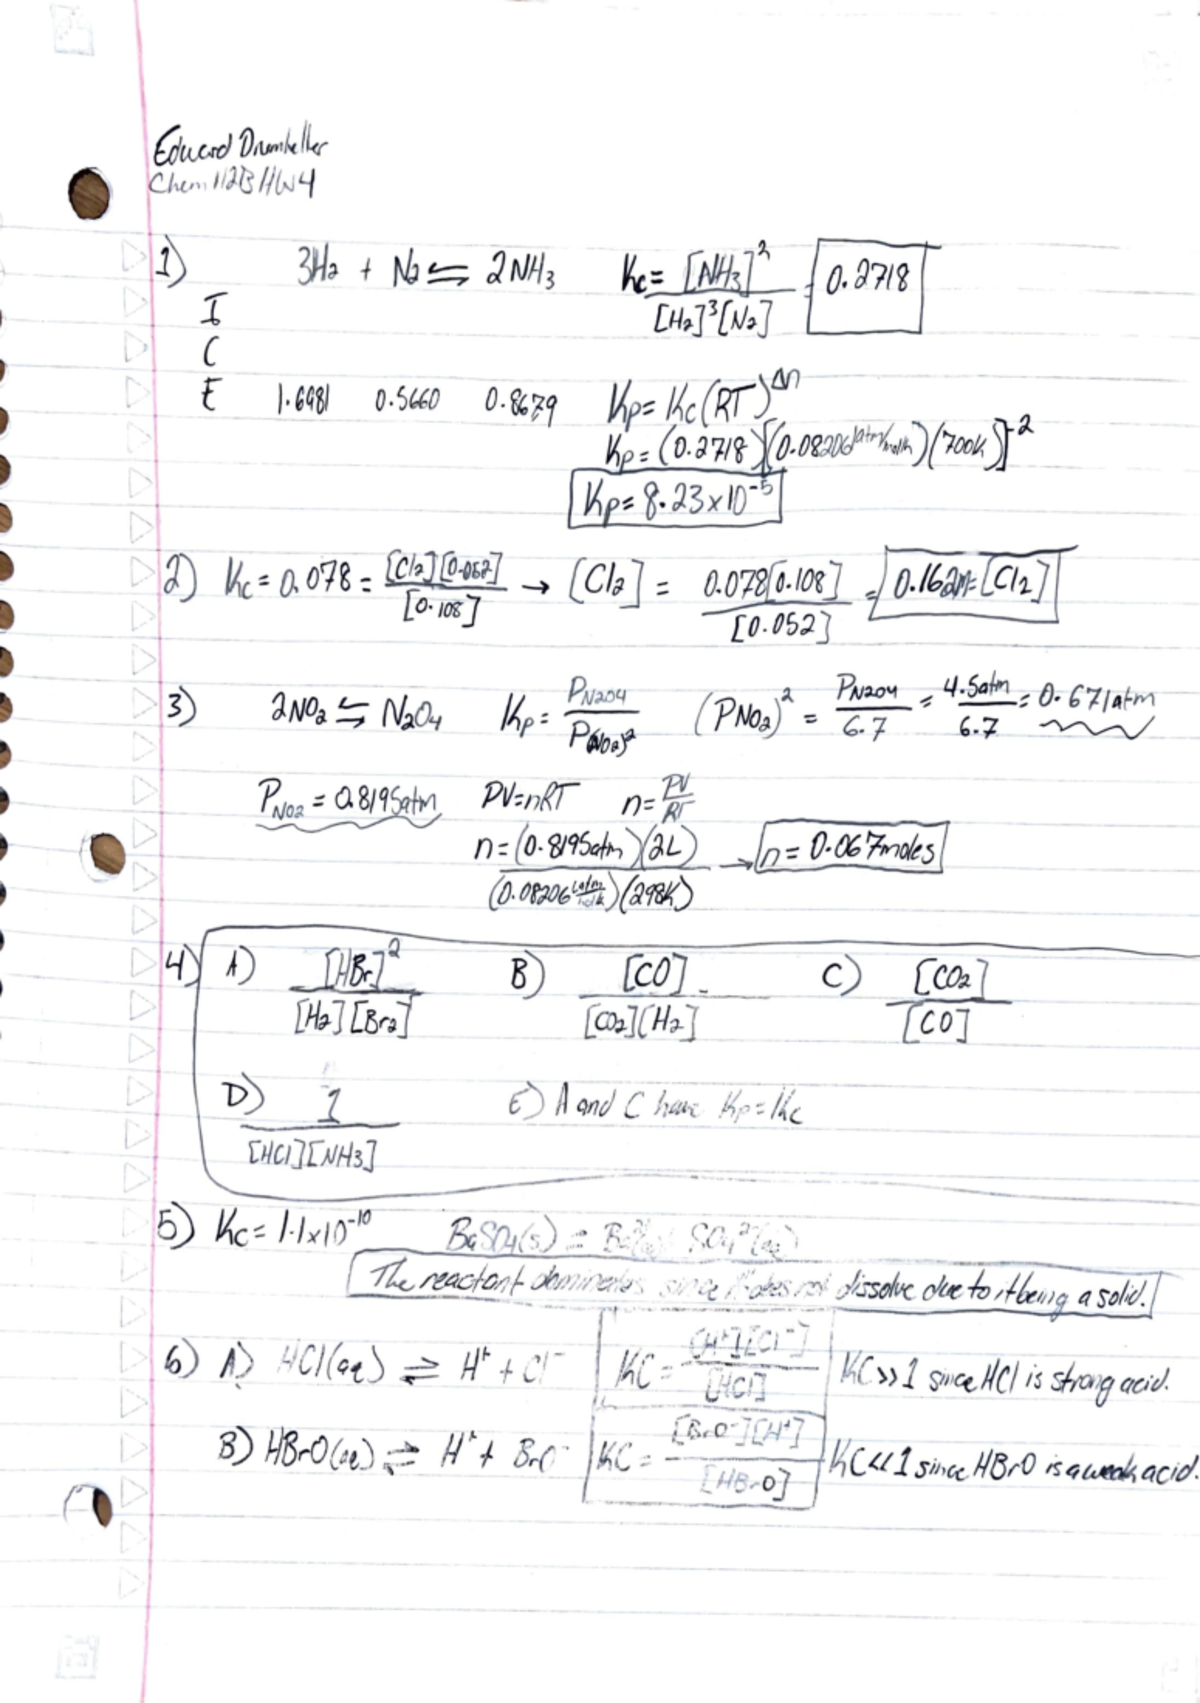 Edward Drumheller
Chem 112B HW4
1) 3H₂ + N₂ ⇌ 2NH₃ Kc = [NH₃]² / [H₂]³[N₂] = 0.2718
I
C
E 1.6981 0.5660 0.8679 Kp = Kc(RT)^Δn
Kp = (0.2718)[(0.08206 latm/molk)(700K)]^-2
Kp = 8.23x10⁻⁵
2) Kc = 0.078 = [Cl₂][0.052] / [0.108] → [Cl₂] = 0.078[0.108] / [0.052] = 0.162M = [Cl₂]
3) 2NO₂ ⇌ N₂O₄ Kp = P_N2O4 / P(NO₂)² (PNO₂)² = P_N2O4 / 6.7 = 4.5atm / 6.7 = 0.671atm
P_NO2 = 0.8195atm PV=nRT n = PV / RT
n = (0.8195atm)(2L) / (0.08206 Latm/molk)(298K) → n = 0.067moles
4) A) [HBr]² / [H₂][Br₂] B) [CO] / [CO₂][H₂] C) [CO₂] / [CO]
D) 1 / [HCl][NH₃] E) A and C have Kp = Kc
5) Kc = 1.1x10⁻¹⁰ BaSO₄(s) = Ba²⁺(aq) SO₄²⁻(aq)
The reactant dominates since it does not dissolve due to it being a solid.
6) A) HCl(aq) ⇌ H⁺ + Cl⁻ KC = [H⁺][Cl⁻] / [HCl] KC>>1 since HCl is strong acid.
B) HBrO(aq) ⇌ H⁺ + BrO⁻ KC = [BrO⁻][H⁺] / [HBrO] KC<<1 since HBrO is a weak acid.